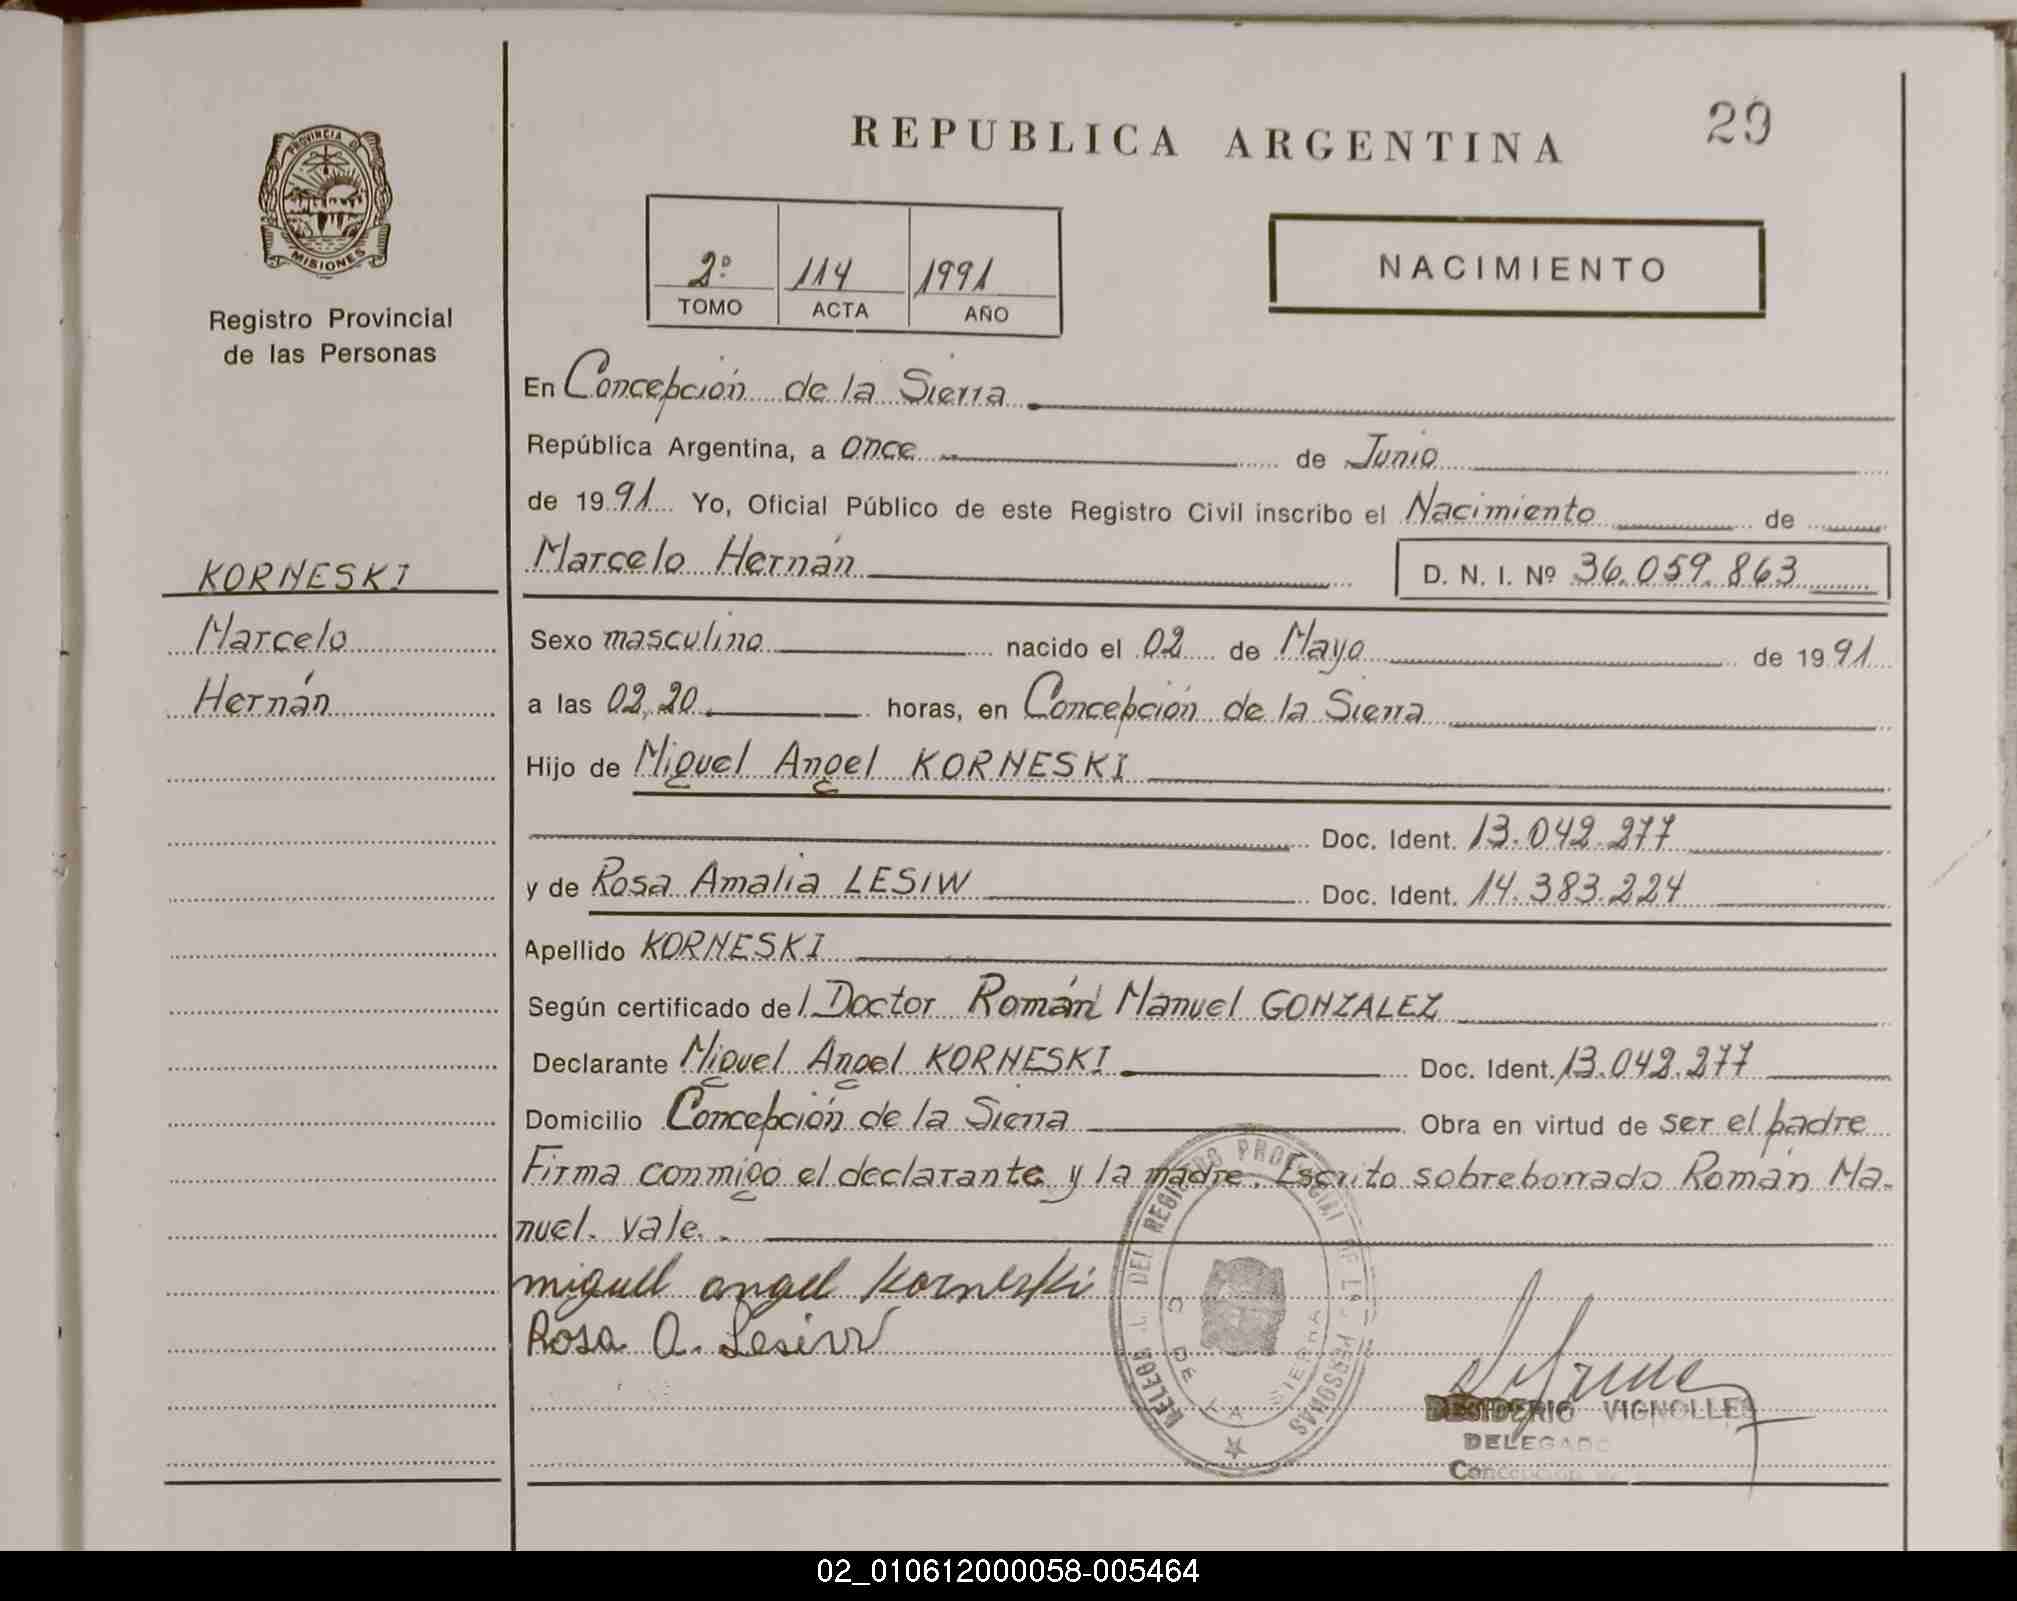 REPUBLICA ARGENTINA
29
PROVINCIA DE
MISIONES
Registro Provincial
de las Personas
2º 114 1991
TOMO ACTA AÑO
NACIMIENTO
En Concepción de la Sierra
República Argentina, a once de Junio
de 1991 Yo, Oficial Público de este Registro Civil inscribo el Nacimiento de
Marcelo Hernán D. N. I. Nº 36.059.863
KORNESKI
Marcelo
Hernán
Sexo masculino nacido el 02 de Mayo de 1991
a las 02,20 horas, en Concepción de la Sierra
Hijo de Miguel Angel KORNESKI
Doc. Ident. 13.042.277
y de Rosa Amalia LESIW Doc. Ident. 14.383.224
Apellido KORNESKI
Según certificado del Doctor Román Manuel GONZALEZ
Declarante Miguel Angel KORNESKI Doc. Ident. 13.042.277
Domicilio Concepción de la Sierra Obra en virtud de ser el padre
Firma conmigo el declarante y la madre. Escrito sobreborrado Román Ma-
nuel. vale.
miguel angel Korneski
Rosa A. Lesiw
DEL REGISTRO PROVINCIAL DE LAS PERSONAS
C. DE LA SIERRA
DESIDERIO VIGNOLLES
DELEGADO
Concepción de
02_010612000058-005464